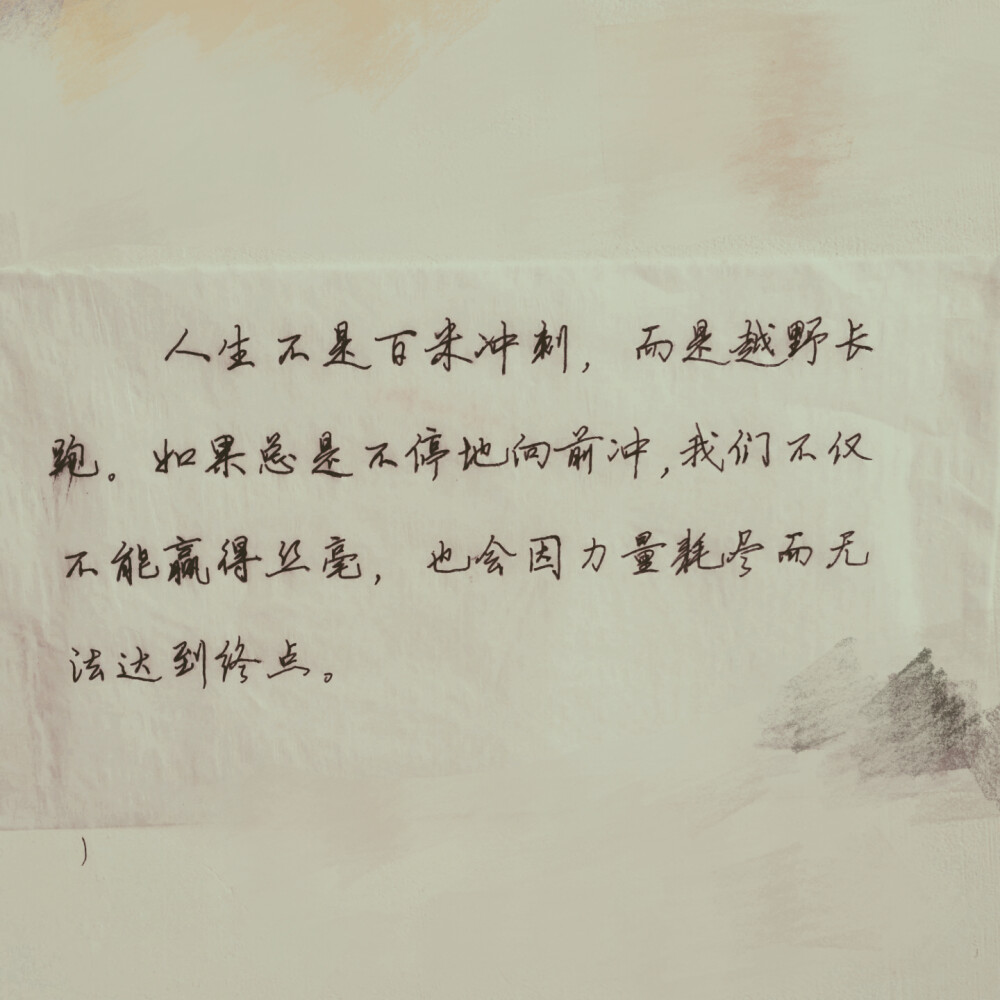 人生不是百米冲刺，而是越野长
跑。如果总是不停地向前冲,我们不仅
不能赢得丝毫，也会因力量耗尽而无
法达到终点。